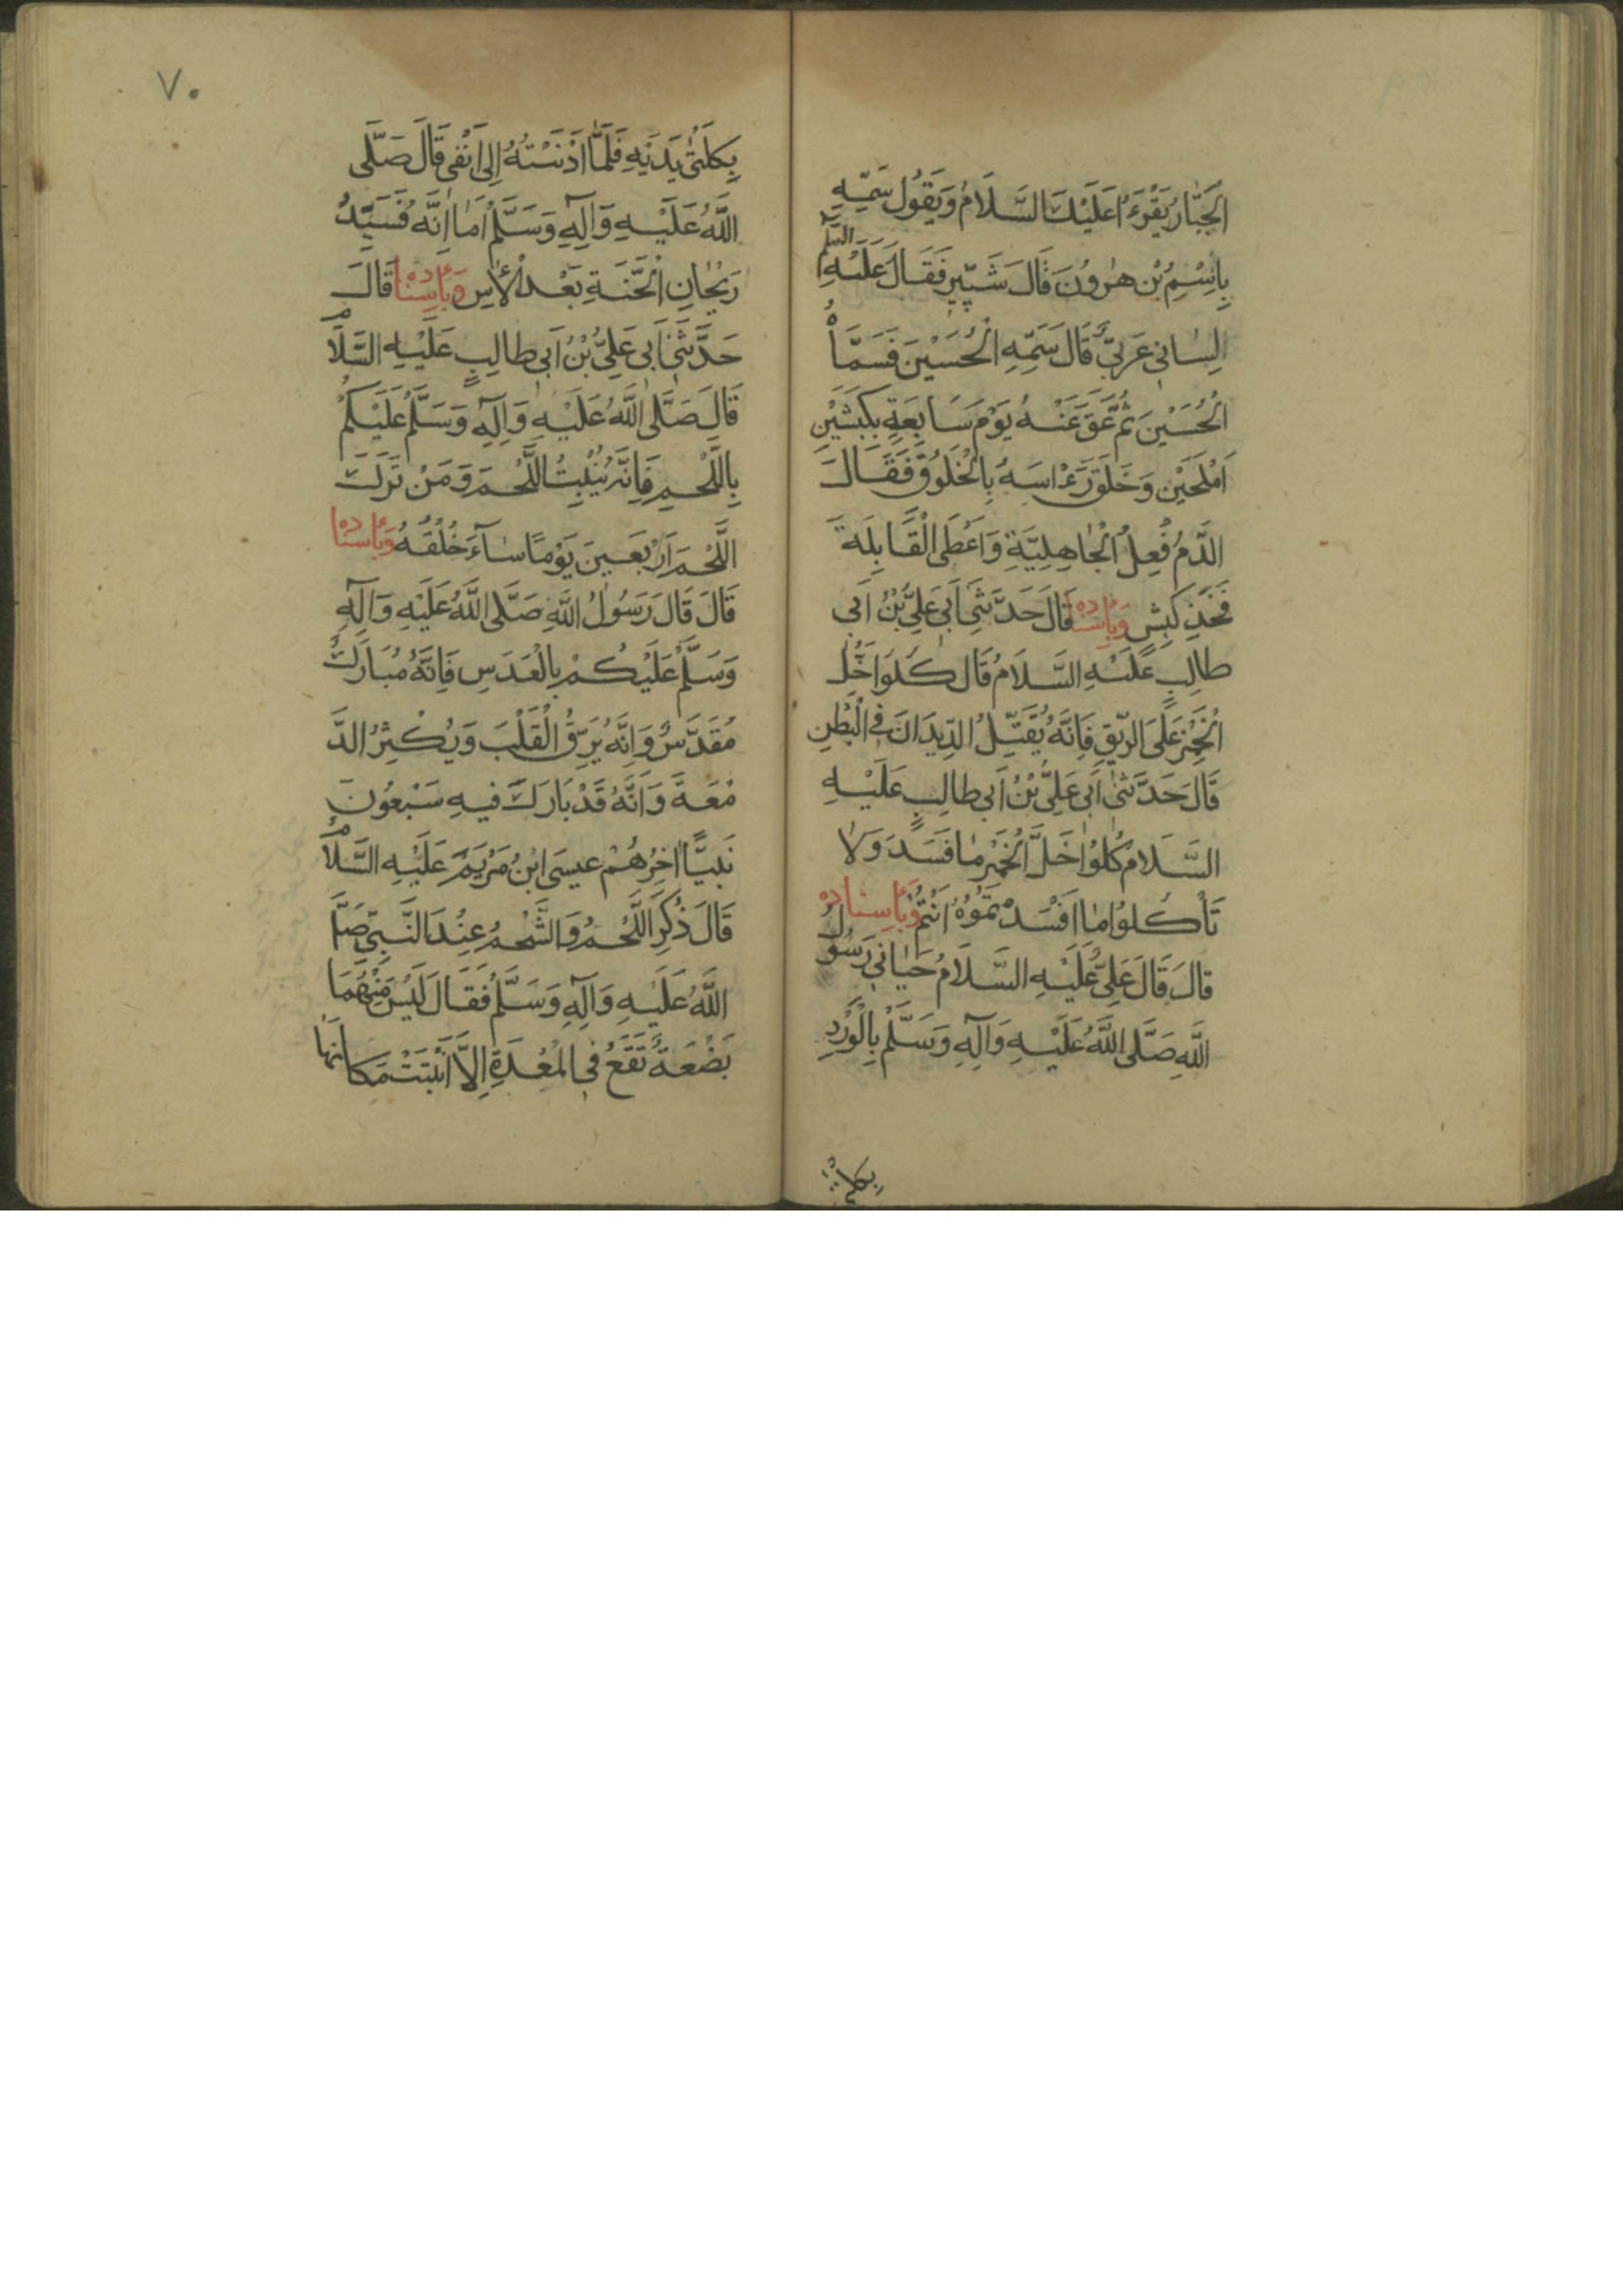 الْجَبَّارُ يَقْرَءُ عَلَيْكَ السَّلَامُ وَيَقُولُ سَمِّهِ
بِاسْمِ بْنِ هٰرُونَ قٰالَ شَبِّيرٍ فَقَالَ عَلَيْهِ السلم
لِسٰانِي عَرَبِيٌّ قَالَ سَمِّهِ الْحُسَيْنَ فَسَمَّاهُ
الْحُسَيْنَ ثُمَّ عَقَّ عَنْهُ يَوْمَ سَابِعَةٍ بِكَبْشَيْنِ
اَمْلَحَيْنِ وَخَلَقَ رَءْاسَهُ بِالْخَلُوقِ فَقَالَ
الدَّمُ فُعِلُ الْجٰاهِلِيَّةِ وَاَعْطَى الْقَابِلَةَ
فَخَذِ كَبِشٍ وَبِاسْنٰادِه قٰالَ حَدَّثَنِي اَبِي عَلِيُّ بْنُ اَبِي
طٰالِبٍ عَلَيْهِ السَّلَامُ قَالَ كُلُوا خَلَّ
الْخَمْرِ عَلَى الرِّيقِ فَاِنَّهُ يُقَتِّلُ الدِّيدَانَ فِي الْبَطْنِ
قَالَ حَدَّثَنِي اَبِي عَلِيُّ بْنُ اَبِي طٰالِبٍ عَلَيْهِ
السَّلَامُ كُلُوا خَلَّ الْخَمْرِ مٰا فَسَدَ وَلاٰ
تَأْكُلُوا مٰا اَفْسَدْتُمُوهُ اَنْتُمْ وَبِأَسِنٰادِه
قٰالَ قَالَ عَلِيٌّ عَلَيْهِ السَّلَامُ حَيٰانِي رَسُولُ
اللَّهِ صَلَّى اللَّهُ عَلَيْهِ وَآلِهِ وَسَلَّمْ بِالْوَرْدِ
بكلتي
٧٠
بِكِلْتَيْ يَدَيْهِ فَلَمَّا اَدْنَيْتُهُ اِلىٰ اَنْفِي قَالَ صَلَّى
اللَّهُ عَلَيْهِ وَآلِهِ وَسَلَّمْ اَمٰا اِنَّهُ فُسَيِّدُ
رَيْحٰانِ الْجَنَّةِ بَعْدَ الْاٰسِ وَبِأَسِنٰادِه قَالَ
حَدَّثَنِي اَبِي عَلِيُّ بْنُ اَبِي طٰالِبٍ عَلَيْهِ السَّلَامُ
قَالَ صَلَّى اللَّهُ عَلَيْهِ وَآلِهِ وَسَلَّمْ عَلَيْكُمْ
بِاللَّحْمِ فَاِنَّهُ يُنْبِتُ اللَّحْمَ وَمَنْ تَرَكَ
اللَّحْمَ اَرْبَعِينَ يَوْمًا سٰاءَ خُلُقُهُ وَبِأَسْنٰادِه
قَالَ قَالَ رَسُولُ اللَّهِ صَلَّى اللَّهُ عَلَيْهِ وَآلِهِ
وَسَلَّمْ عَلَيْكُمْ بِالْعَدَسِ فَاِنَّهُ مُبَارَكٌ
مُقَدَّسٌ وَاِنَّهُ يُرَقِّقُ الْقَلْبَ وَيُكْثِرُ الدَّ
مْعَةَ وَاِنَّهُ قَدْ بَارَكَ فِيهِ سَبْعُونَ
نَبِيًّا اٰخِرُهُمْ عِيسَى ابْنُ مَرْيَمَ عَلَيْهِ السَّلَامُ
قَالَ ذُكِرَ اللَّحْمُ وَالشَّحْمُ عِنْدَ النَّبِيِّ صَلَّى
اللَّهُ عَلَيْهِ وَآلِهِ وَسَلَّمْ فَقَالَ لَيْسَ مِنْهُمَا
بَضْعَةٌ تَقَعُ فِي الْمَعِدَةِ اِلَّا اَنْبَتَتْ مَكَانَهَا